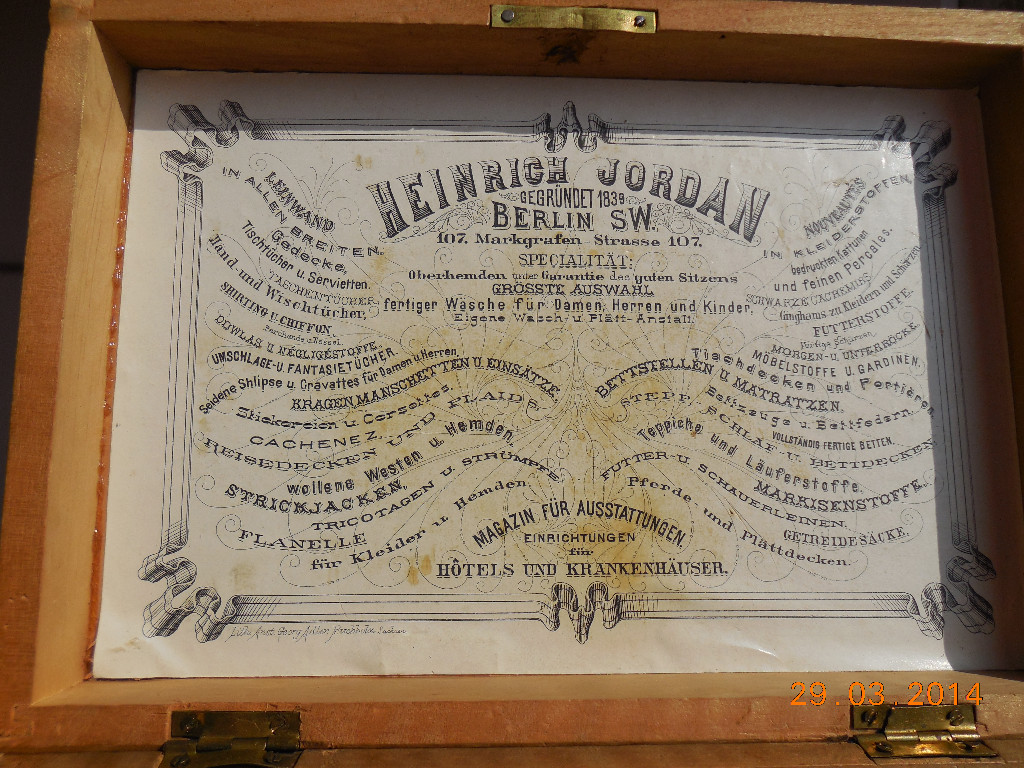 HEINRICH JORDAN
GEGRÜNDET 1839
BERLIN SW.
107. Markgrafen Strasse 107.
SPECIALITÄT:
Oberhemden unter Garantie des guten Sitzens
GRÖSSTE AUSWAHL
fertiger Wäsche für Damen, Herren und Kinder,
Eigene Wasch- u. Plätt-Anstalt.
LEINWAND
IN ALLEN BREITEN.
Gedecke,
Tischtücher u. Servietten.
TASCHENTÜCHER
Hand- und Wischtücher,
SHIRTING U. CHIFFON
Barchende u. Nessel.
DOWLAS U. NÉGLIGÉSTOFFE.
UMSCHLAGE- U. FANTASIETÜCHER.
Seidene Shlipse u. Cravattes für Damen u. Herren,
KRAGEN MANSCHETTEN U. EINSÄTZE.
Stickereien u. Corsettes.
CACHENEZ.
REISEDECKEN UND PLAIDS.
wollene Westen u. Hemden.
STRICKJACKEN.
TRICOTAGEN U. STRÜMPFE
FLANELLE
für Kleider u. Hemden.
NOUVEAUTÉS
IN KLEIDERSTOFFEN.
bedruckten Kattunen
und feinen Percales.
SCHWARZE CACHEMIRS
Ginghams zu Kleidern und Schürzen
FUTTERSTOFFE.
Fertige Schürzen
MORGEN- U. UNTERRÖCKE
MÖBELSTOFFE U. GARDINEN.
Tischdecken und Portièren
BETTSTELLEN U. MATRATZEN.
Bettzeuge u. Bettfedern.
VOLLSTÄNDIG FERTIGE BETTEN.
STEPP, SCHLAF- U. BETTDECKEN
Teppiche und Läuferstoffe.
MARKISENSTOFFE.
FUTTER- U. SCHEUERLEINEN.
GETREIDESÄCKE.
Pferde und Plättdecken.
MAGAZIN FÜR AUSSTATTUNGEN.
EINRICHTUNGEN
für
HÔTELS UND KRANKENHÄUSER.
Lith. Anst. Georg
29.03.2014